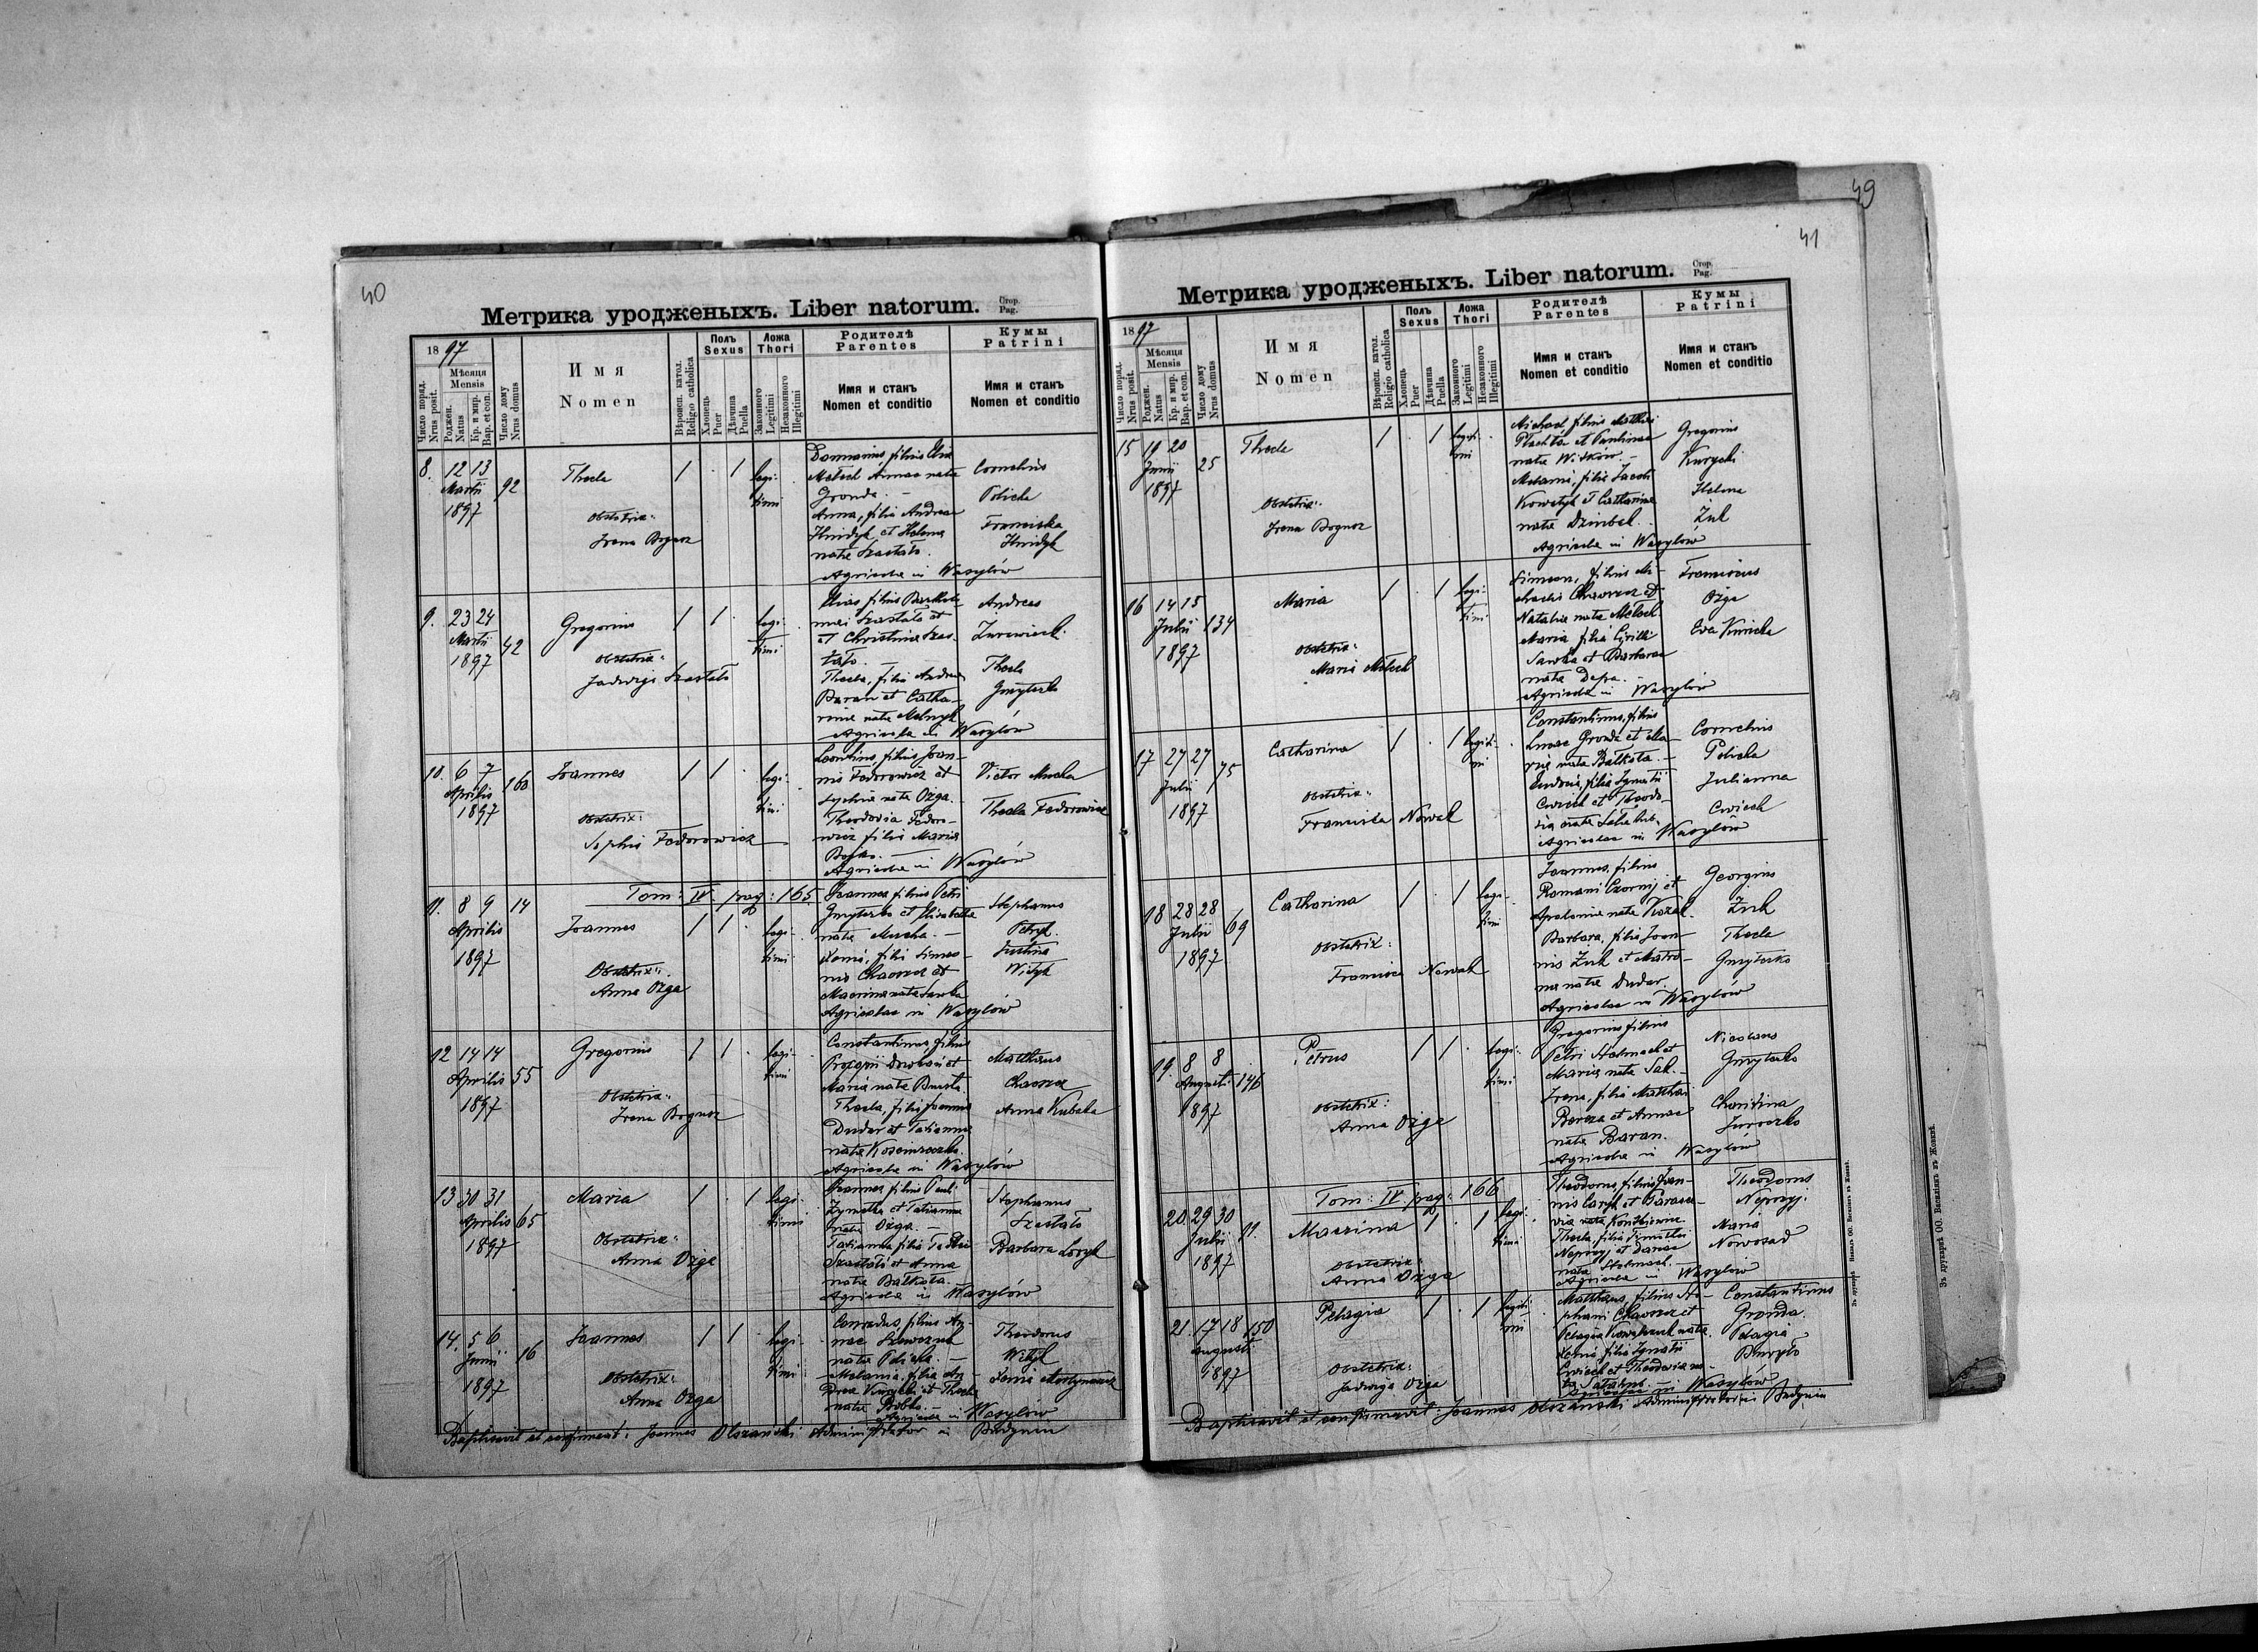 40
Метрика уродженыхъ. Liber natorum. Стор. Pag.
1897
Число поряд. Nrus posit.
Мѣсяця Mensis
Роджен. Natus
Кр. и мир. Bap. et con.
Число дому Nrus domus
Имя Nomen
Вѣроисп. катол. Religio catholica
Полъ Sexus
Хлопець Puer
Дѣвчина Puella
Ложа Thori
Законного Legitimi
Незаконного Illegitimi
Родителѣ Parentes
Имя и станъ Nomen et conditio
Кумы Patrini
Имя и станъ Nomen et conditio
8. 12 13 Martii 1897 92
Thecla 1 . 1 legitimi
obstetrix: Irena Bognar
Damianus filius Eliae
Meloch Annae nata
Gronda. —
Anna, filia Andreae
Hnidyk et Helena
nata Szastało.
Agricolae in Wasylów
Cornelius
Policha
Franciska
Hnidyk
9. 23 24 Martii 1897 42
Gregorius 1 1 . legitimi
obstetrix: Jadwiga Szastało
Elias filius Bartholo-
maei Szastało et
et Christina Szas-
tało. —
Thecla, filia Andreae
Baran et Catha-
rinae nata Melnyk
Agricolae in Wasylów
Andreas
Thecla
Gmyterko
10. 6 7 Aprilis 1897 160
Joannes 1 1 . legitimi
obstetrix: Sophia Fedorowicz
Leontius, filius Joan-
nis Fedorowicz et
nata Ożga.
Theodosia Fedoro-
wicz filia Mariae
Agricolae in Wasylów
Victor Mucha
Thecla Fedorowicz
11. 8 9 14 Aprilis 1897
Tom: IV. pag: 165.
Joannes 1 1 . legitimi
Obstetrix: Anna Ożga
Joannes filius Petri
Gmyterko et Elisabetha
nata Mucha. —
Xenia, filia Simeo-
nis Chaowcz et
Macrina nata Sawka
Agricolae in Wasylów
Stephanus
Petryk.
Justina
Wityk
12 14 14 Aprilis 1897 55
Gregorius 1 1 . legitimi
Obstetrix: Irena Bognar
Constantinus filius
Maria nata
Thecla, filia Joannis
Dudar et Tatianna
Agricolae in Wasylów
Matthaeus
Anna Kubaka
13 30 31 Aprilis 1897 65
Maria 1 . 1 legitimi
Obstetrix: Anna Ożga
Joannes filius Pauli
et Tatianna
nata Ożga. —
Tatianna filia
Szastało et Anna
nata Bałkota.
Agricolae in Wasylów
Stephanus
Szastało
Barbara Loryk
14. 5 6 Junii 1897 16
Joannes 1 1 . legitimi
Obstetrix: Anna Ożga
Conradus, filius An-
nae Szewczuk
nata Policha. —
Melania, filia An-
dreae et Thecla
nata Bobko. —
Agricolae in Wasylów
Theodorus
Wityk
Xenia
Baptisavit et confirmavit: Joannes Olszański Administrator in Budynin
49
41
Метрика уродженыхъ. Liber natorum. Стор. Pag.
1897
Число поряд. Nrus posit.
Мѣсяця Mensis
Роджен. Natus
Кр. и мир. Bap. et con.
Число дому Nrus domus
Имя Nomen
Вѣроисп. катол. Religio catholica
Полъ Sexus
Хлопець Puer
Дѣвчина Puella
Ложа Thori
Законного Legitimi
Незаконного Illegitimi
Родителѣ Parentes
Имя и станъ Nomen et conditio
Кумы Patrini
Имя и станъ Nomen et conditio
15 19 20 Junii 1897 25
Thecla 1 . 1 legitimi
Obstetrix: Irena Bognar
Michael filius Matthaei
Płachta et Paulinae
nata Witków. —
Melania, filia Jacobi
Kowalyk et Catharinae
nata Dzimbel.
Agricolae in Wasylów
Gregorius
Kurycki
Helena
Żuk
16 14 15 Julii 1897 134
Maria 1 . 1 legitimi
obstetrix: Maria Meloch
Simeon, filius Mi-
chaelis et
Natalia nata Meloch
Maria filia Cyrilli
Sawka et Barbarae
nata Depa. —
Agricolae in Wasylów
Franciscus
Ożga
Eva
17 27 27 Julii 1897 75
Catharina 1 . 1 legitimi
obstetrix: Franciska Nowak
Constantinus, filius
Lucae Gronda et Ma-
riae nata Bałkota. —
Eudoxia, filia Ignatii
Cwiech et Theodo-
sia nata
Agricolae in Wasylów
Cornelius
Policha
Julianna
Cwiech
18 28 28 Julii 1897 69
Catharina 1 . 1 legitimi
obstetrix: Francisca Nowak
Joannes, filius
Romani Czornij et
Apolonia nata Kozak.
Barbara, filia Joan-
nis Żuk et Matro-
na nata Dudar.
Agricolae in Wasylów
Georgius
Żuk
Thecla
Gmyterko
19. 8 8 Augusti 1897 146
Petrus 1 1 . legitimi
obstetrix: Anna Ożga
Gregorius filius
Petri Stelmach et
Maria nata Sak. —
Irena, filia Matthaei
Bereza et Annae
nata Baran.
Agricolae in Wasylów
Nicolaus
Gmyterko
Charitina
Juroczko
20. 29 30 Julii 1897 11.
Tom: IV. pag: 166
Macrina 1 . 1 legitimi
obstetrix: Anna Ożga
Theodorus, filius Joan-
nis et Parasce-
via nata
Thecla, filia Timothei
Neprzyj et
nata Stelmach. —
Agricolae in Wasylów
Theodorus
Neprzyj.
Maria
Nowosad
21. 17 18 150 Augusti 1897
Pelagia 1 . 1 legitimi
Obstetrix: Jadwiga Ożga
Matthaeus, filius Ste-
phani et
Pelagia nata.
Xenia filia Ignatii
Cwiech et Theodosia na-
ta
Agricolae in Wasylów
Constantinus
Gronda.
Pelagia
Baptisavit et confirmavit: Joannes Olszański Administrator in Budynin
Зъ друкарнѣ ОО. Василіянъ въ Жовквѣ.